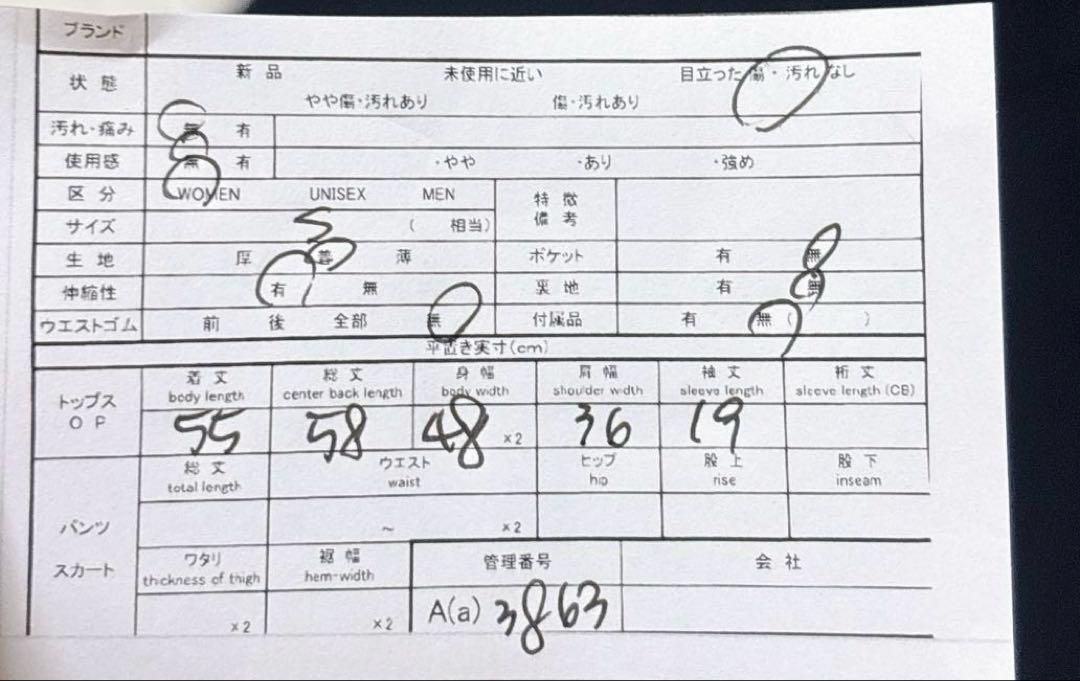 ブランド
状態 新品 未使用に近い 目立った傷・汚れなし
やや傷・汚れあり 傷・汚れあり
汚れ・痛み 無 有
使用感 無 有 ・やや ・あり ・強め
区分 WOMEN UNISEX MEN 特徴
備考
サイズ S ( 相当)
生地 厚 普 薄 ポケット 有 無
伸縮性 有 無 裏地 有 無
ウエストゴム 前 後 全部 無 付属品 有 無 ( )
平置き実寸(cm)
着丈 総丈 身幅 肩幅 袖丈 裄丈
body length center back length body width shoulder width sleeve length sleeve length (CB)
トップス
OP
55 58 48 ×2 36 19
総丈 ウエスト ヒップ 股上 股下
total length waist hip rise inseam
パンツ ~ ×2
スカート
ワタリ 裾幅 管理番号 会社
thickness of thigh hem-width
×2 ×2 A(a) 3863